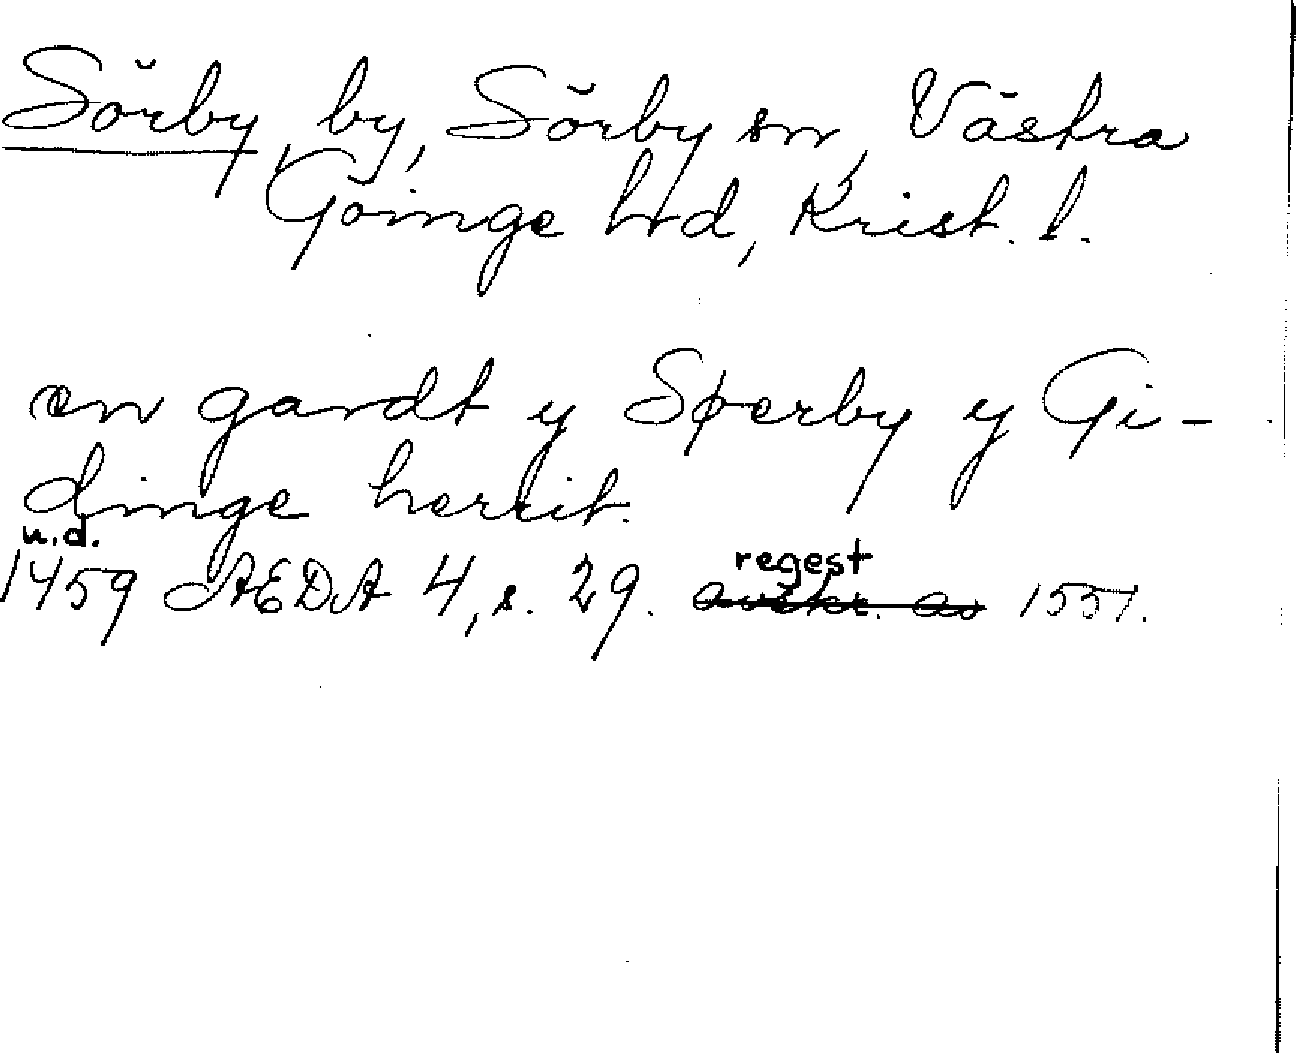 Sörby, by, Sörby sn, Västra
Göinge hd, Krist. l.
en gardt y Sþerby y Gi-
dinge herrit.
u.d.
regest
1459 AEDA 4, s. 29. avskr. av 1551.